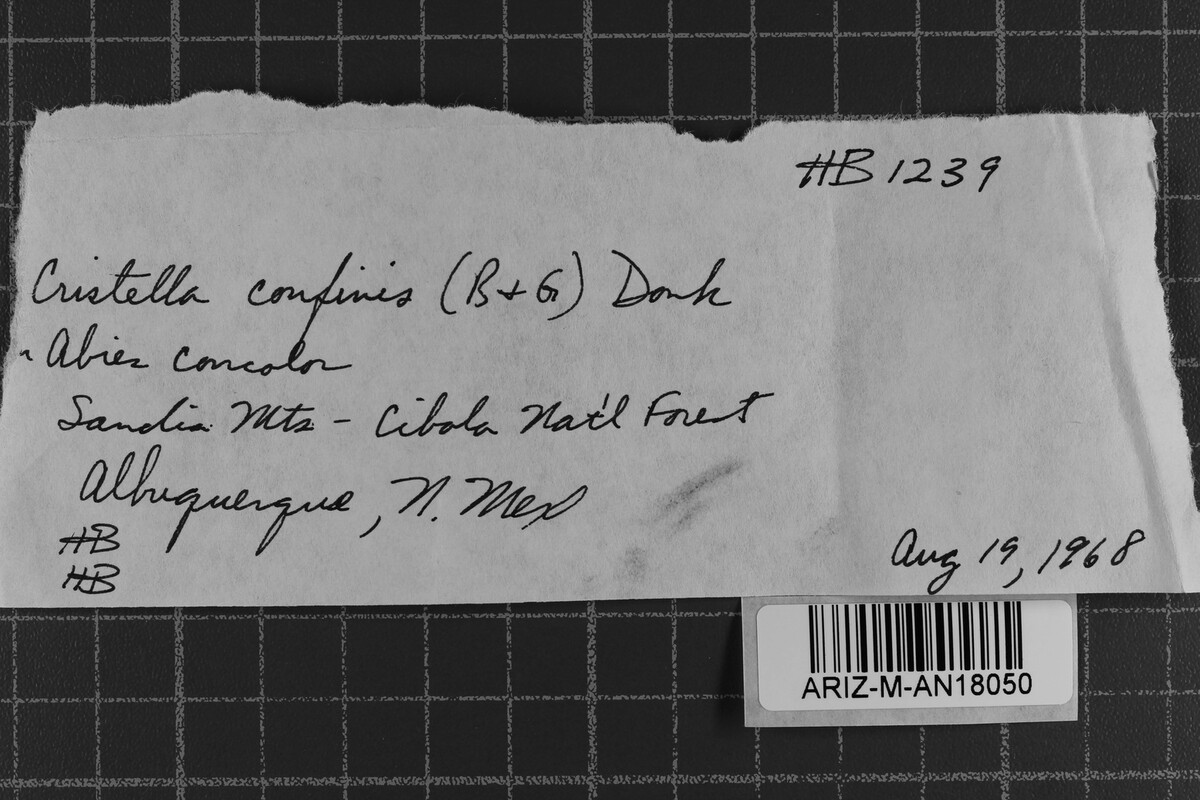 HB 1239
Cristella confinis (B & G) Donk
Abies concolor
Sandia Mts - Cibola Nat'l Forest
Albuquerque, N. Mex
HB
HB
Aug 19, 1968
ARIZ-M-AN18050